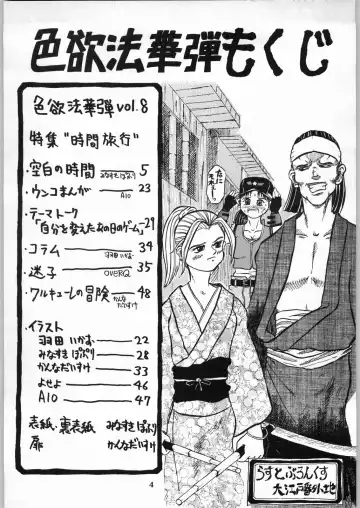 色欲法華弾もくじ
色欲法華弾 vol.8
特集"時間旅行"
・空白の時間 5
みなすきぽぷり
・ウンコまんが 23
A10
・テーマトーク
「自分を変えたあの日のゲーム」29
・コラム 34
羽田いかす
・迷子 35
OVERQ
・ワルキューレの冒険 48
かんなだいすけ
・イラスト
羽田いかす 22
みなすきぽぷり 28
かんなだいすけ 33
よせよ 46
A10 47
表紙・裏表紙 みなすきぽぷり
扉 かんなだいすけ
うすとぷろんくす
大江戸番外地
4